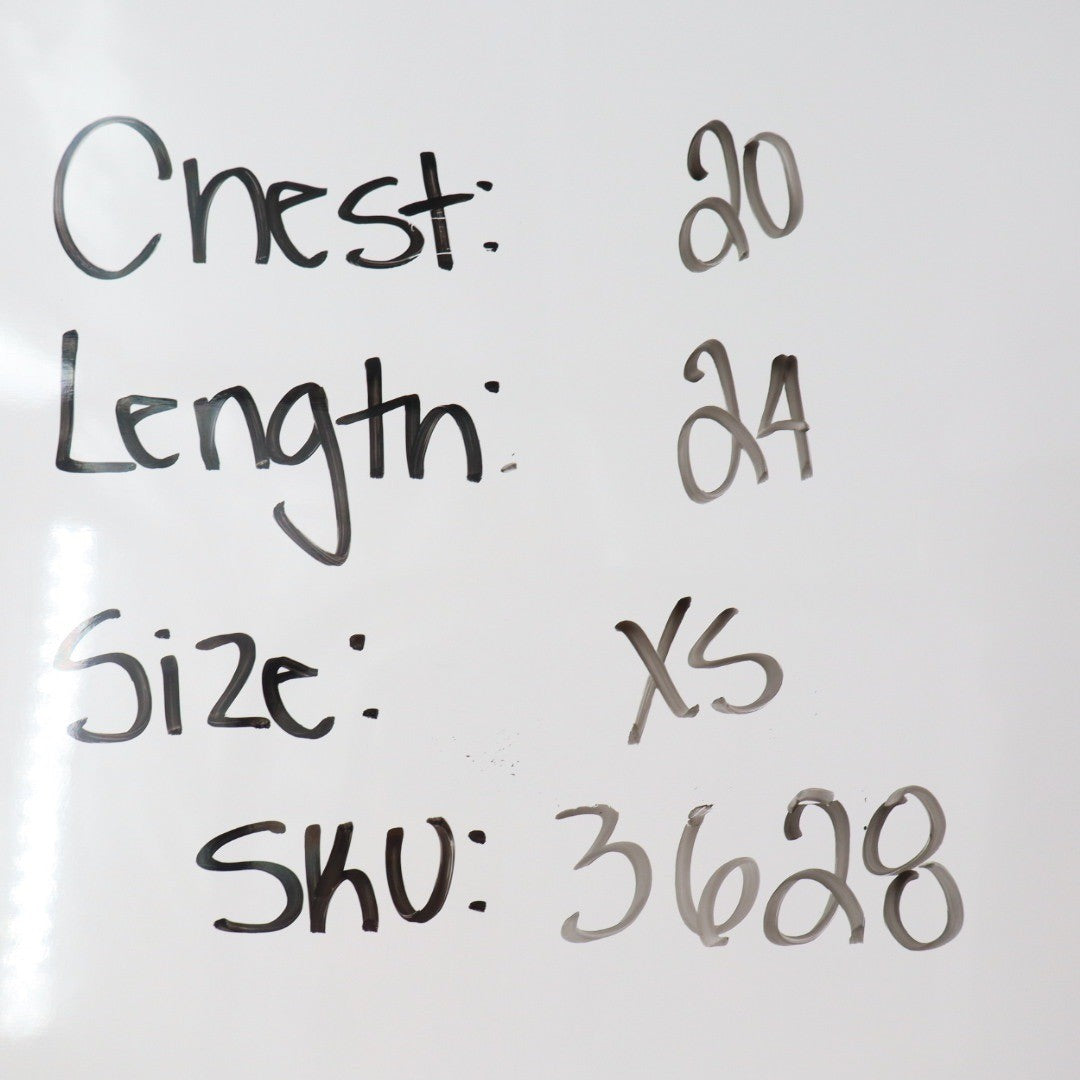 Chest: 20
Length: 24
Size: XS
SKU: 3628